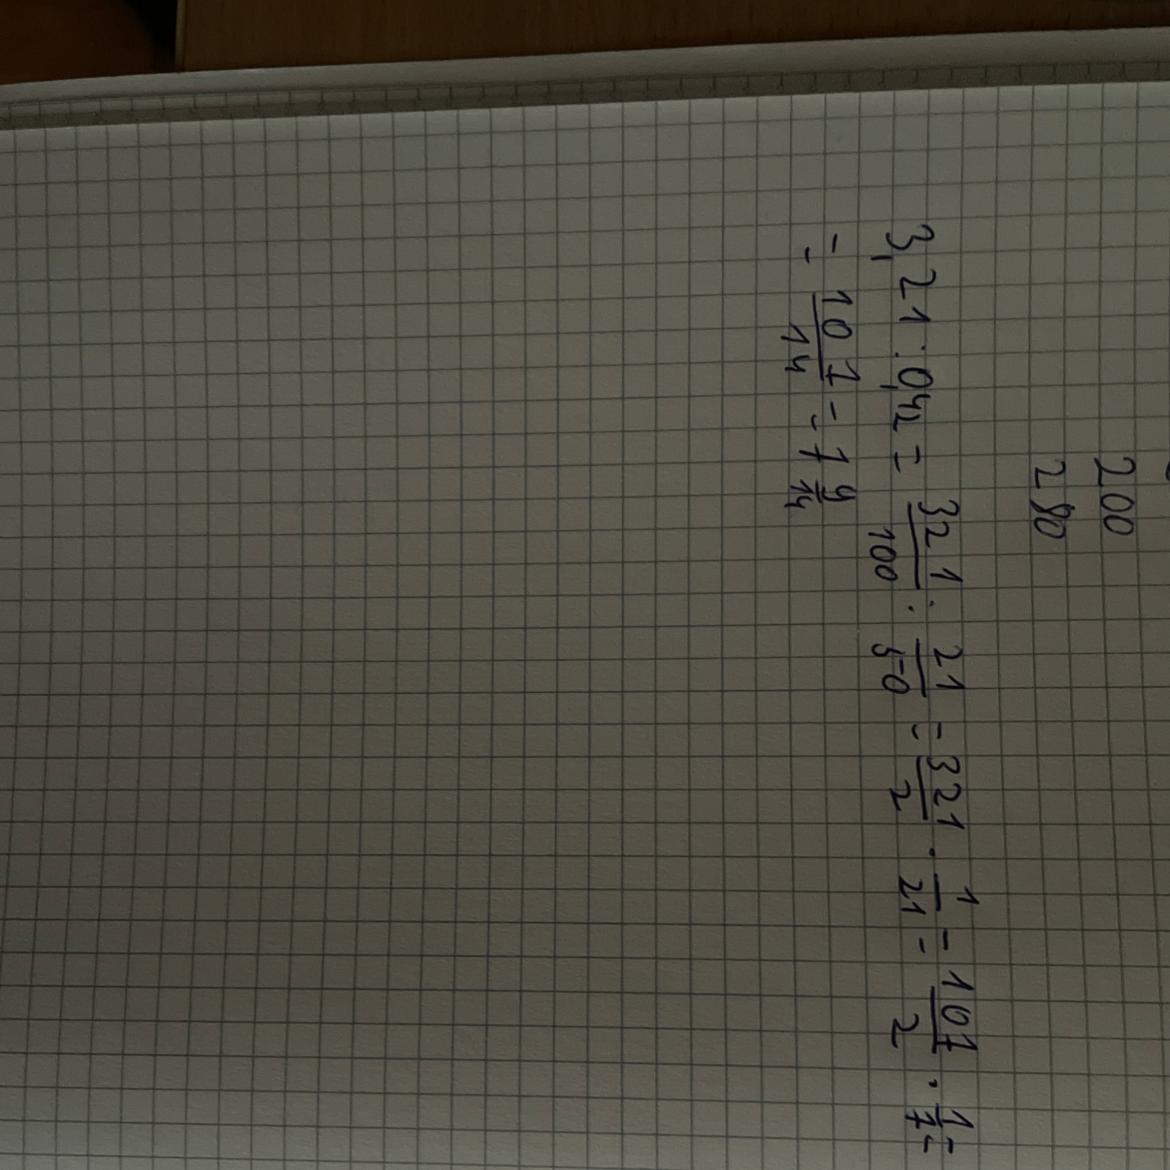 200
280
3,21 : 0,42 = 321/100 : 21/50 = 321/2 · 1/21 = 107/2 · 1/7 =
= 107/14 = 7 9/14